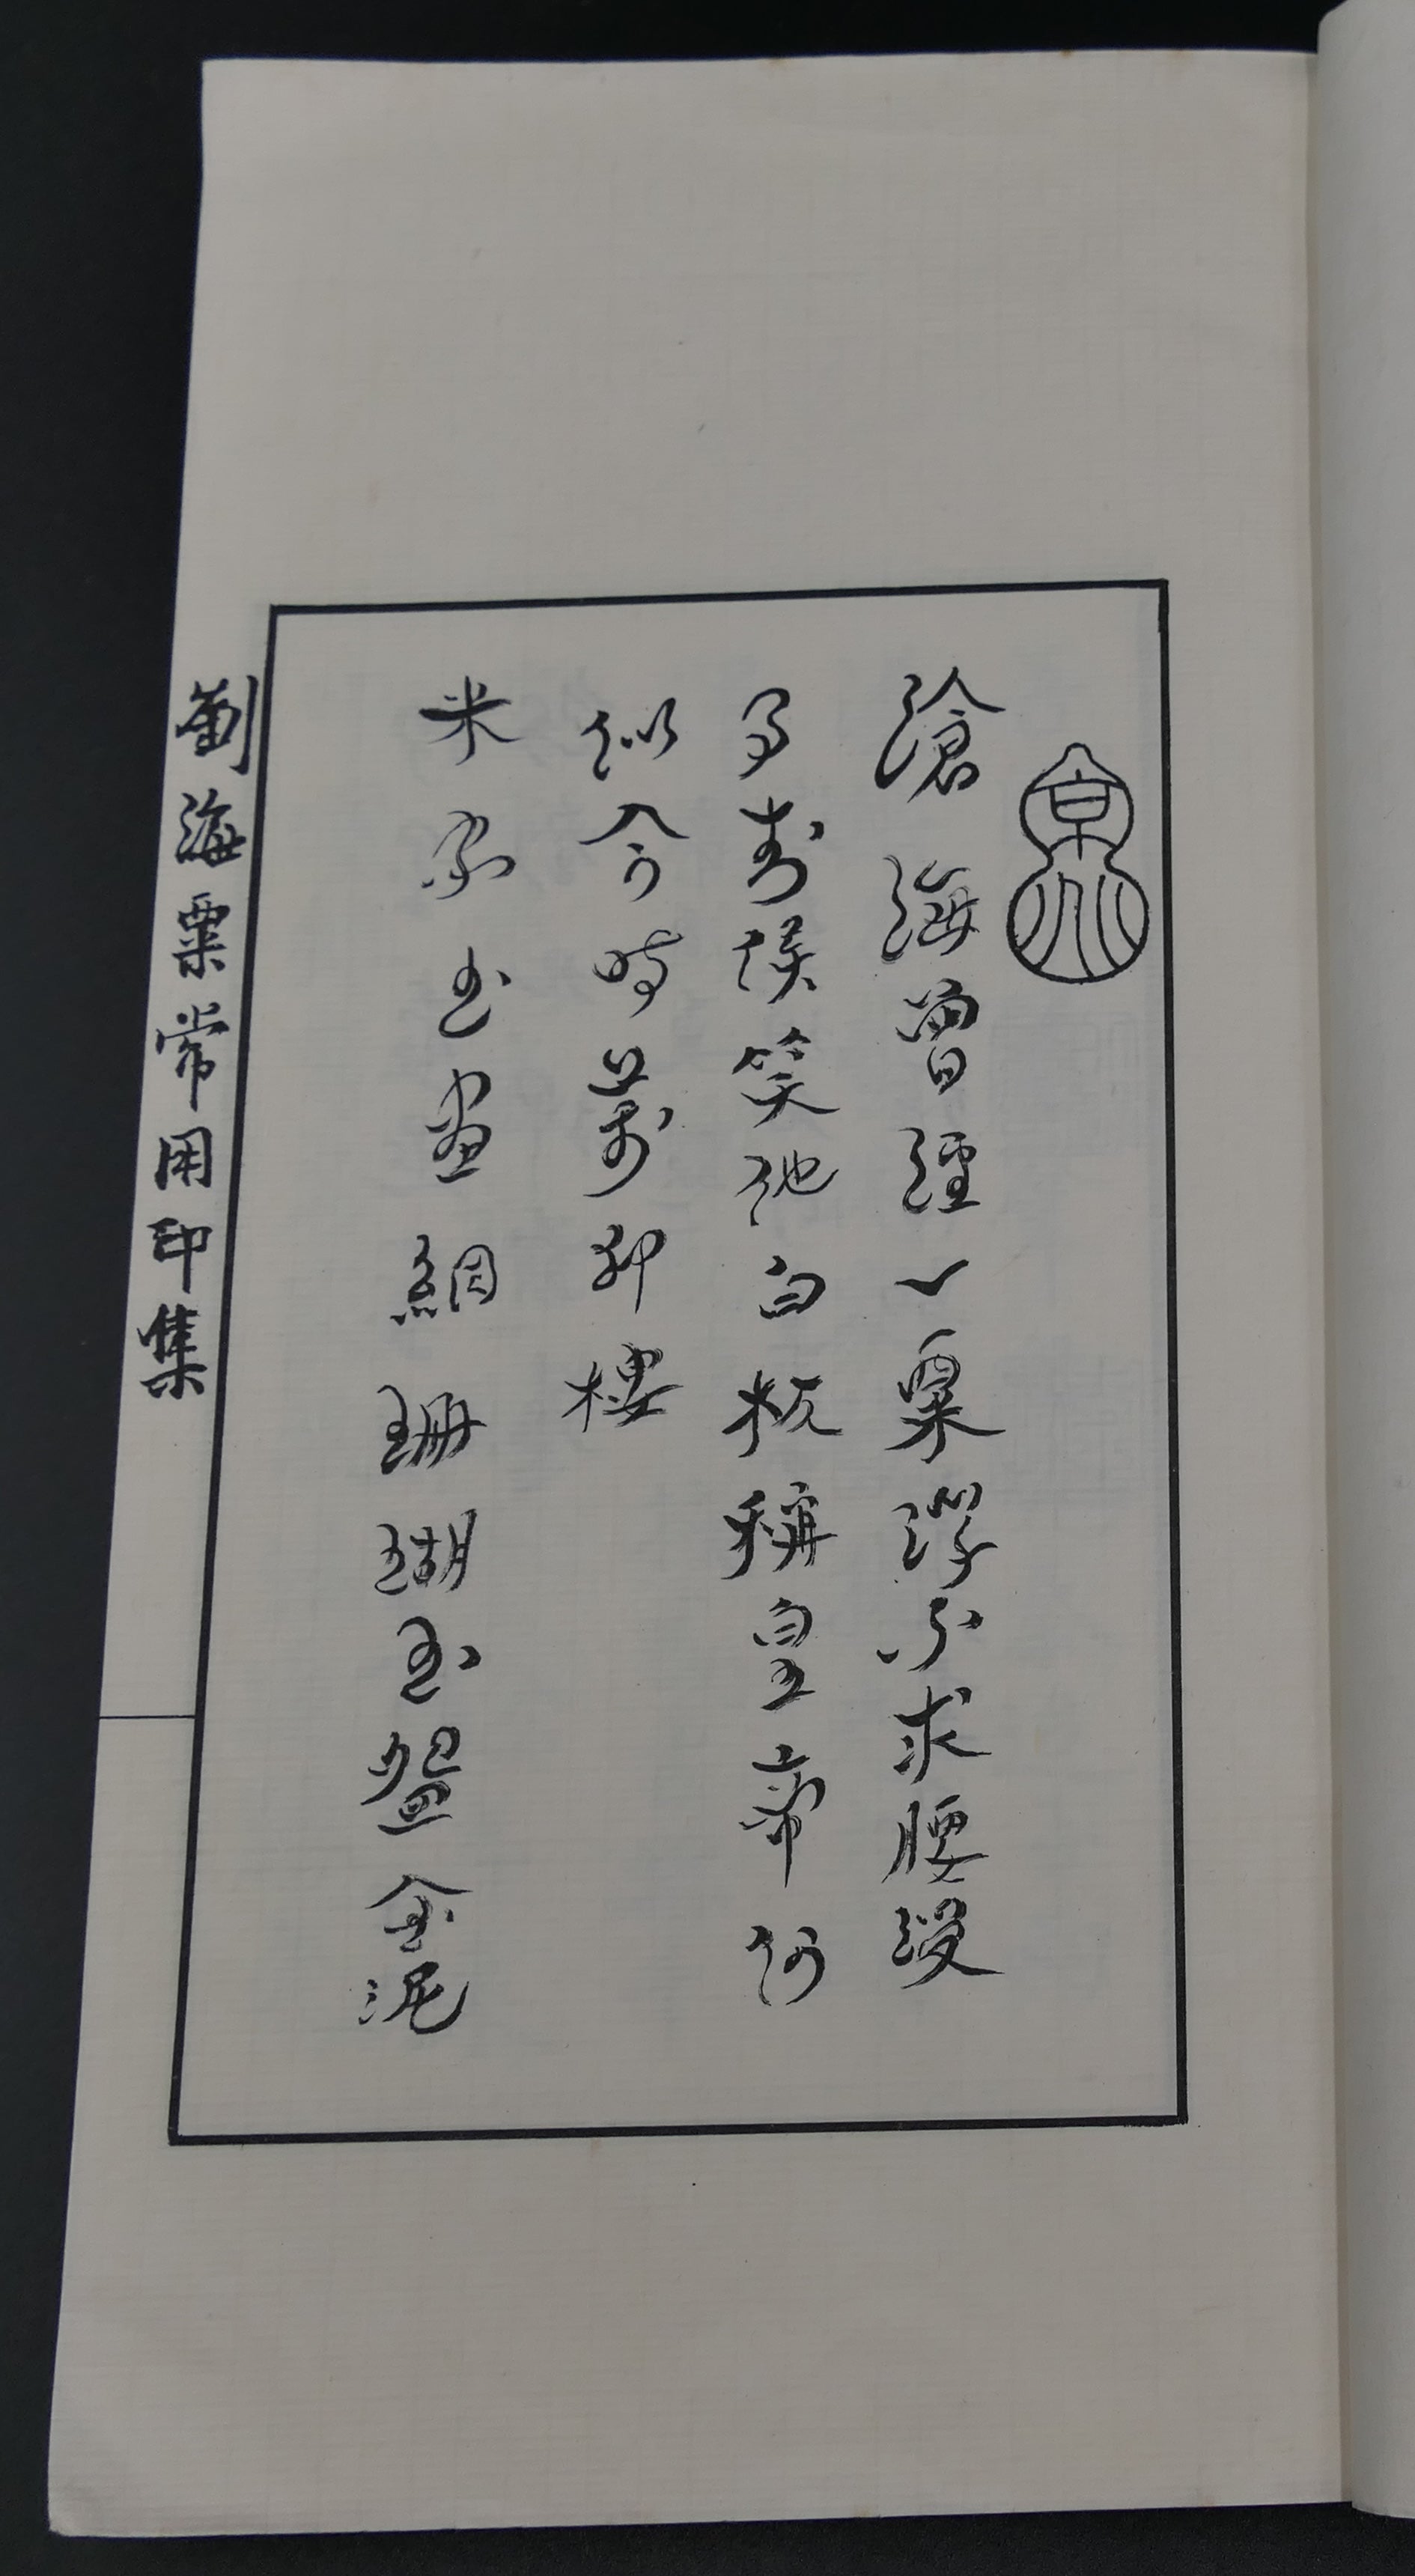 滄海曾經一粟浮不求腰綬
與封侯笑他白板稱皇帝何
似今時萬印樓
米家書畫網珊瑚玉盤金泥
劉海粟常用印集